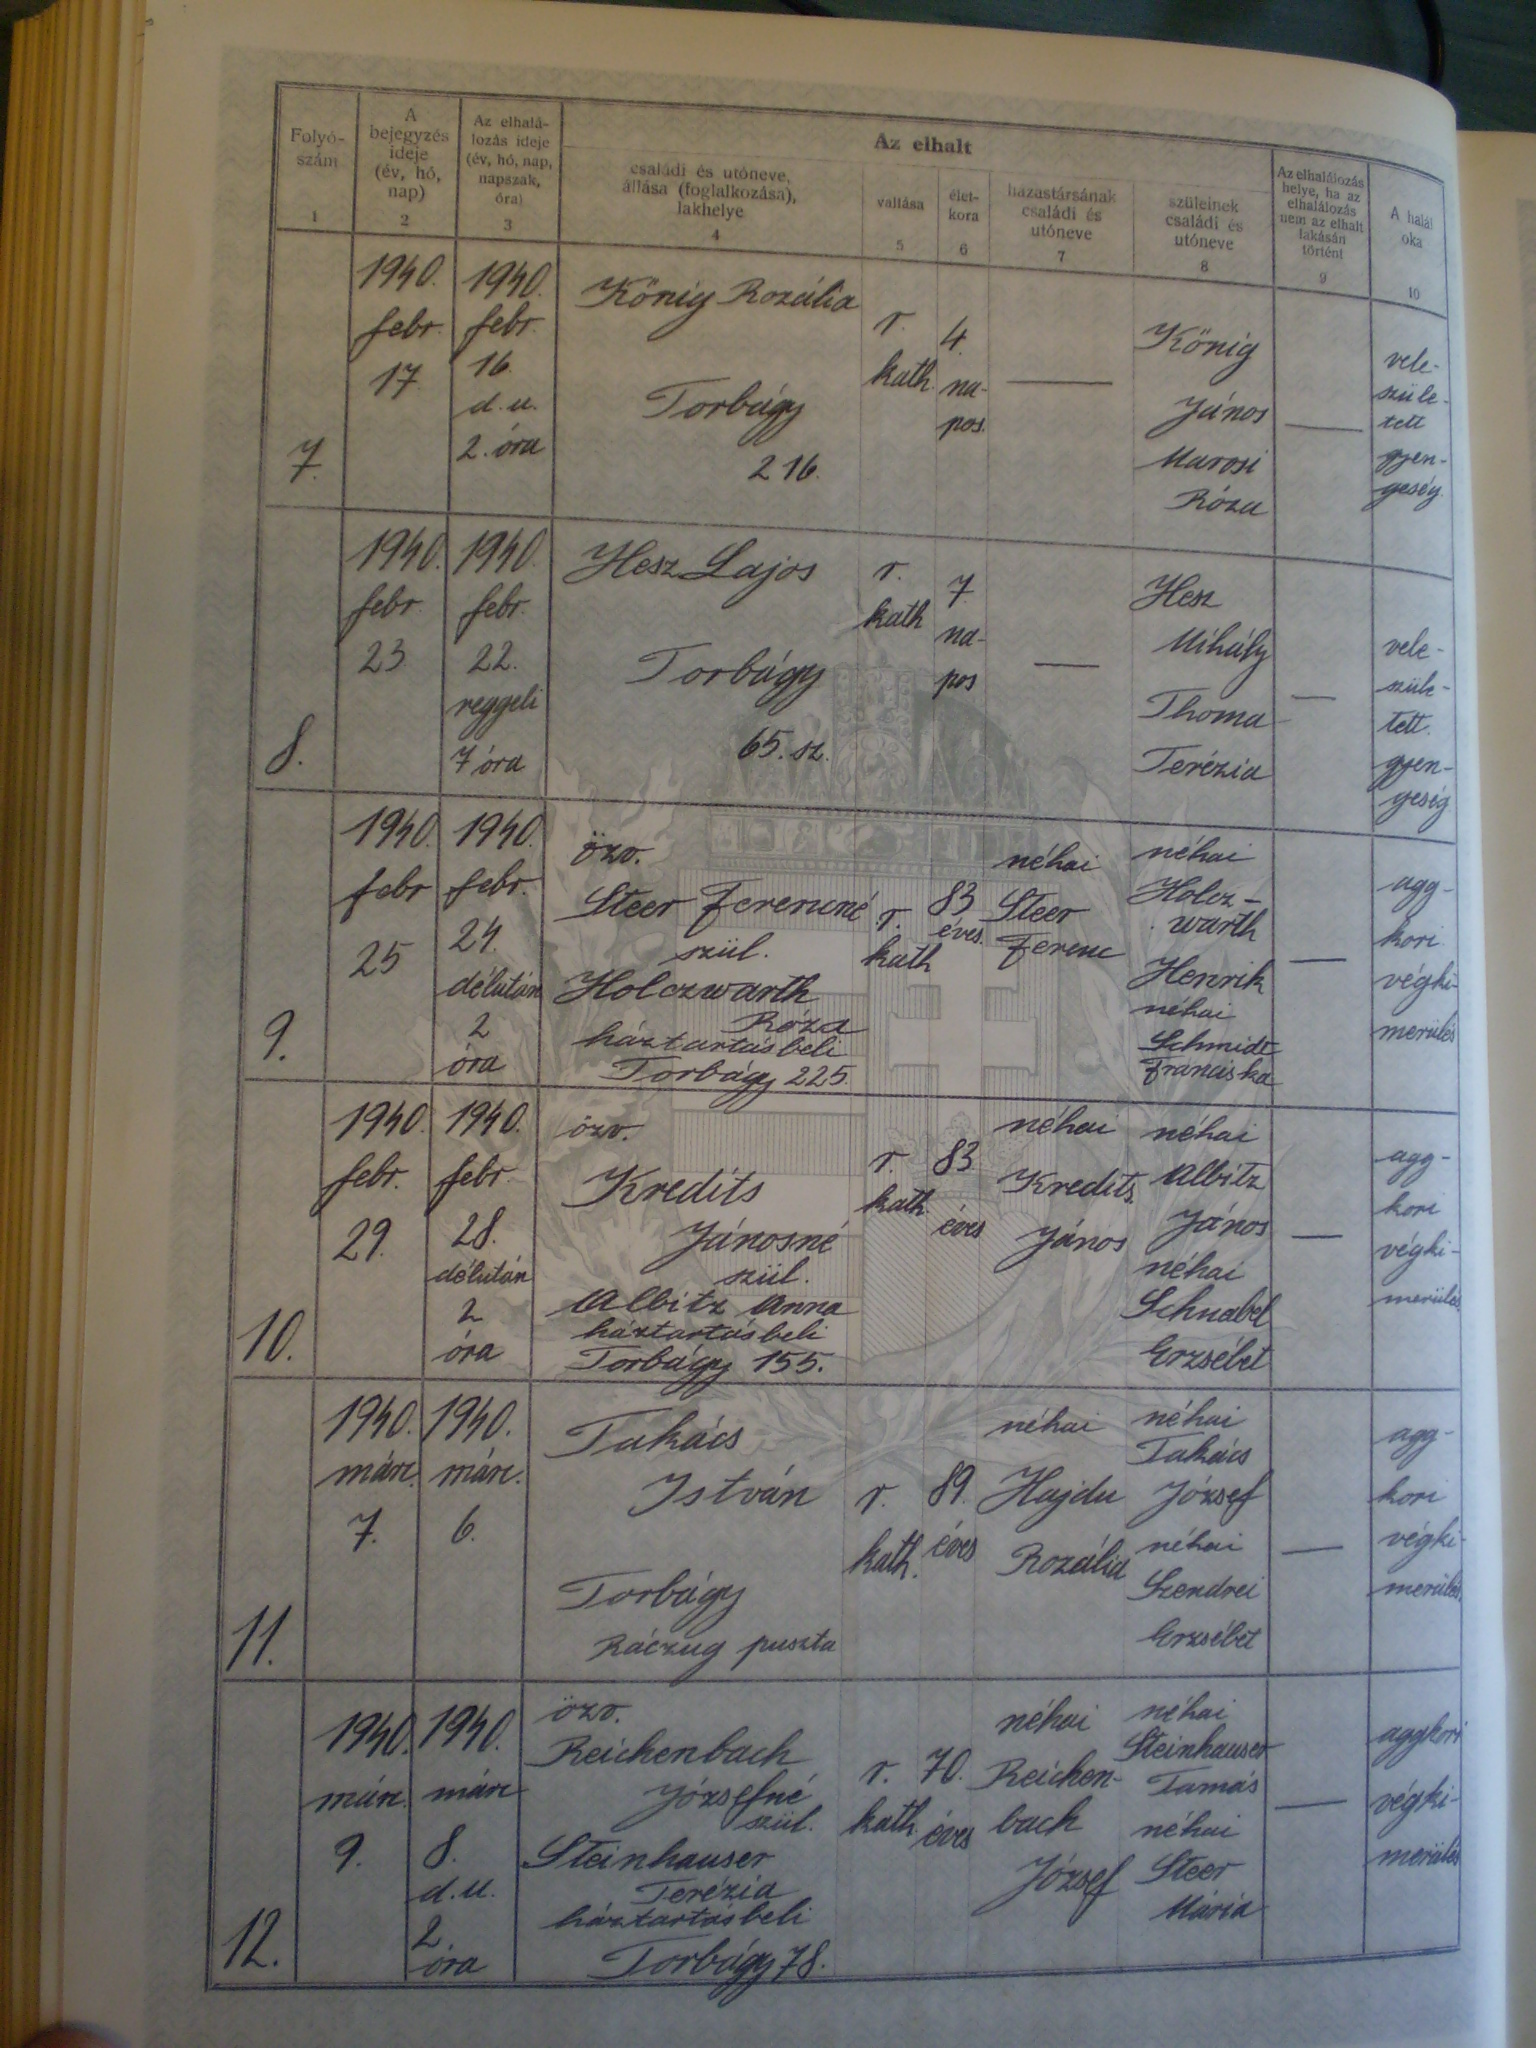 Folyó-
szám
1
A
bejegyzés
ideje
(év, hó,
nap)
2
Az elhalá-
lozás ideje
(év, hó, nap,
napszak,
óra)
3
Az elhalt
családi és utóneve,
állása (foglalkozása),
lakhelye
4
vallása
5
élet-
kora
6
házastársának
családi és
utóneve
7
szüleinek
családi és
utóneve
8
Az elhalálozás
helye, ha az
elhalálozás
nem az elhalt
lakásán
történt
9
A halál
oka
10
7.
1940.
febr.
17.
1940.
febr.
16.
d. u.
2. óra
König Rozália
Torbágy
216.
r.
kath.
4.
na-
pos.
König
János
Marosi
Róza
vele-
szüle-
tett
gyen-
geség.
8.
1940.
febr.
23.
1940.
febr.
22.
reggeli
7 óra
Hesz Lajos
Torbágy
65. sz.
r.
kath
7.
na-
pos
Hesz
Mihály
Thoma
Terézia
vele-
szüle-
tett.
gyen-
geség
9.
1940.
febr
25
1940.
febr.
24.
délután
2
óra
özv.
Steer Ferencné
szül.
Holczwarth
Róza
háztartásbeli
Torbágy 225.
r.
kath
83
éves.
néhai
Steer
Ferenc
néhai
Holcz-
warth
Henrik
néhai
Schmidt
Franciska
agg-
kori
végki-
merülés
10.
1940.
febr.
29.
1940.
febr.
28.
délután
2
óra
özv.
Kredits
Jánosné
szül.
Albitz Anna
háztartásbeli
Torbágy 155.
r.
kath.
83
éves
néhai
Kredits
János
néhai
Albitz
János
néhai
Schnabel
Erzsébet
agg-
kori
végki-
merülés.
11.
1940.
márc.
7.
1940.
márc.
6.
Takács
István
Torbágy
Ráczug puszta
r.
kath.
89.
éves
néhai
Hajdu
Rozália
néhai
Takács
József
néhai
Szendrei
Erzsébet
agg-
kori
végki-
merülés.
12.
1940.
márc.
9.
1940.
márc
8.
d. u.
2.
óra
özv.
Reichenbach
Józsefné
szül.
Steinhauser
Terézia
háztartásbeli
Torbágy 78.
r.
kath.
70.
éves
néhai
Reichen-
bach
József
néhai
Steinhauser
Tamás
néhai
Steer
Mária
aggkori
végki-
merülés